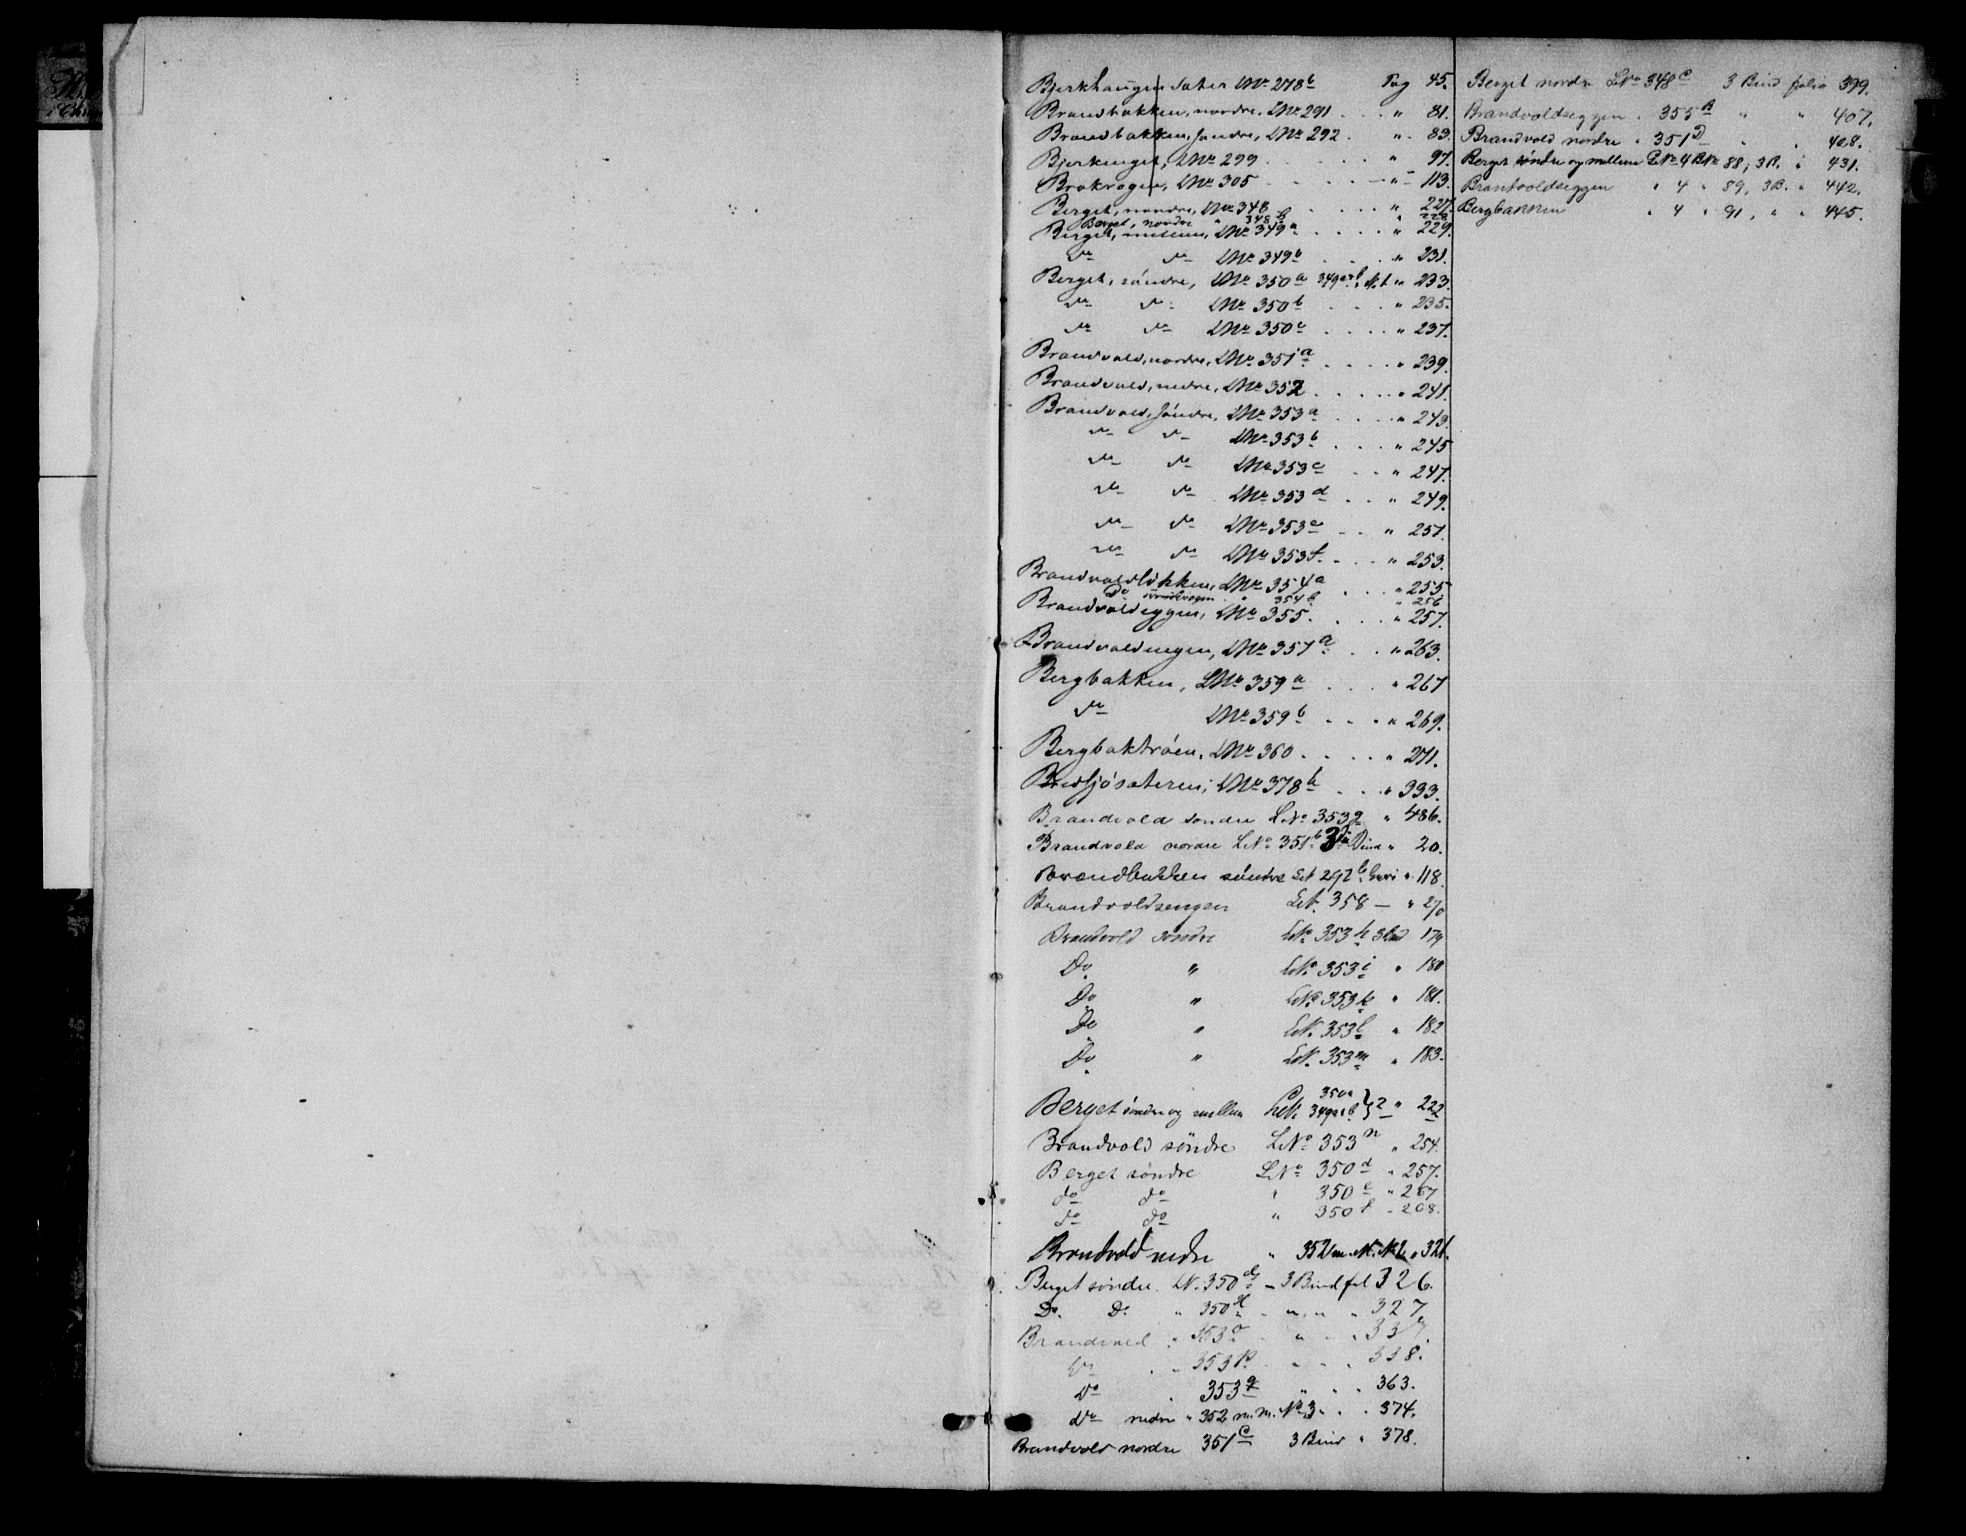 Bjerkhaugen Sater LNr. 278b Pag 45.
Brandbakken, nordre, LNr. 291 . . . " 81.
Brandbakken, søndre, LNr. 292 . . " 83.
Bjerkinget, LNr. 299 . . . . . " 97.
Brokrogen, LNr. 305 . . . . " 113.
Berget, nordre, LNr. 348 . . . . " 227.
Berget, nordre " 348 b " 228
Berget, mellem, LNr. 349a . . . . " 229.
do do LNr. 349b . . . " 231.
Berget, søndre, LNr. 350a 349a+b " 233.
do do LNr. 350b . . . " 235.
do do LNr. 350c . . . . " 237.
Brandvold, nordre, LNr. 351a . . . . " 239.
Brandvold, nedre, LNr. 352 . . . . . " 241.
Brandvold, søndre, LNr. 353a . . . . " 243.
do do LNr. 353b . . . . " 245
do do LNr. 353c . . " 247.
do do LNr. 353d . . " 249.
do do LNr. 353e . . " 251.
do do LNr. 353f . . . " 253.
Brandvoldløkken, LNr. 354a . . " 255
Do " 354b " 256
Brandvoldeggen, LNr. 355. . . . . " 257.
Brandvoldengen, LNr. 357a . . " 263.
Bergbakken, LNr. 359a . . . " 267
do LNr. 359b . . . " 269.
Bergbaktrøen, LNr. 360 . . . . " 271.
Bredsjøsæteren, LNr. 378b . . " 393.
Brandvold søndre LNo. 353g " 486.
Brandvold nordre LNo. 351b 3die Bind " 20.
Brændbakken søndre LN 292b " 118.
Brandvoldsengen LN. 358 — " 270
Brandvold søndre LNo. 353h 3 Bind 179
Do " LNo. 353i " 180
Do " LNo. 353k " 181.
Do " LN. 353l " 182
Do " LN. 353m " 183.
Berget søndre og mellem LN. 350a 349a&b } 2 " 222
Brandvold søndre LNo. 353n " 254.
Berget søndre LNo. 350d " 257.
do do " 350e " 267
do do " 350f " 268.
Brandvold nedre " 352 m. N. No. 2 " 321.
Berget søndre LN. 350g — 3 Bind fol 326.
Do. Do. " 350H " " " 327
Brandvold " 353o " " 337.
Do " 353p " " " 338.
Do " 353q " " " 363.
do nedre " 352 m. M. No 3 " " 374.
Brandvold nordre 351c 3 Bind " 378.
Berget nordre LNo 348c 3 Bind folio 399.
Brandvoldseggen " 355B " " 407.
Brandvold nordre " 351D " " 408.
Berget søndre og mellem GNo 4 BNo 88, 3 B. " 431.
Brandvoldseggen " 4 " 89, 3 B. " 442.
Bergbakken " 4 " 91, " " 445.